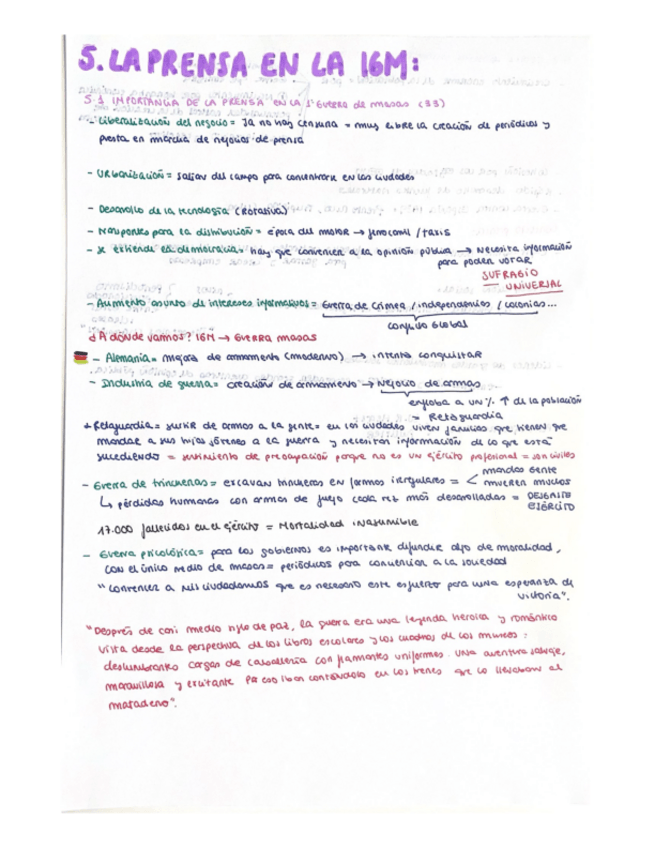 5. LA PRENSA EN LA IGM:
5.1 IMPORTANCIA DE LA PRENSA en la 1ª Guerra de masas (33)
- Liberalización del negocio = Ya no hay censura = muy libre la creación de periódicos y
puesta en marcha de negocios de prensa
- Urbanización = salían del campo para concentrarse en las ciudades
- Desarrollo de la tecnología (Rotativa)
- Transportes para la distribución = época del motor → ferrocarril / taxis
- Se extiende la democracia = hay que convencer a la opinión pública → Necesita información
para poder votar
SUFRAGIO
UNIVERSAL
- Aumento asunto de intereses informativos = Guerra de Crimea / independencias / colonias...
conflicto GLOBAL
¿A dónde vamos? IGM → GUERRA masas
- Alemania = mejora de armamento (moderno) → intenta conquistar
- Industria de guerra = creación de armamento → Negocio de armas
engloba a un % ↑ de la población
= Retaguardia
+ Retaguardia = surtir de armas a la gente = en las ciudades viven familias que tienen que
mandar a sus hijos jóvenes a la guerra y necesitan información de lo que está
sucediendo = sentimiento de preocupación porque no es un ejército profesional = son civiles
- Guerra de trincheras = excavan trincheras en formas irregulares = < mandas gente
mueren muchos
↳ pérdidas humanas con armas de fuego cada vez más desarrolladas = DESGASTE
EJÉRCITO
17.000 fallecidos en el ejército = Mortalidad inasumible
- Guerra psicológica = para los gobiernos es importante difundir algo de moralidad,
con el único medio de masas = periódicos para convencer a la sociedad
"Convencer a mis ciudadanos que es necesario este esfuerzo para una esperanza de
victoria".
"Después de casi medio siglo de paz, la guerra era una leyenda heroica y romántica
vista desde la perspectiva de los libros escolares y los cuadros de los museos:
deslumbrantes cargas de caballería con flamantes uniformes. Una aventura salvaje,
maravillosa y excitante. Por eso iban cantándolo en los trenes que los llevaban al
matadero".